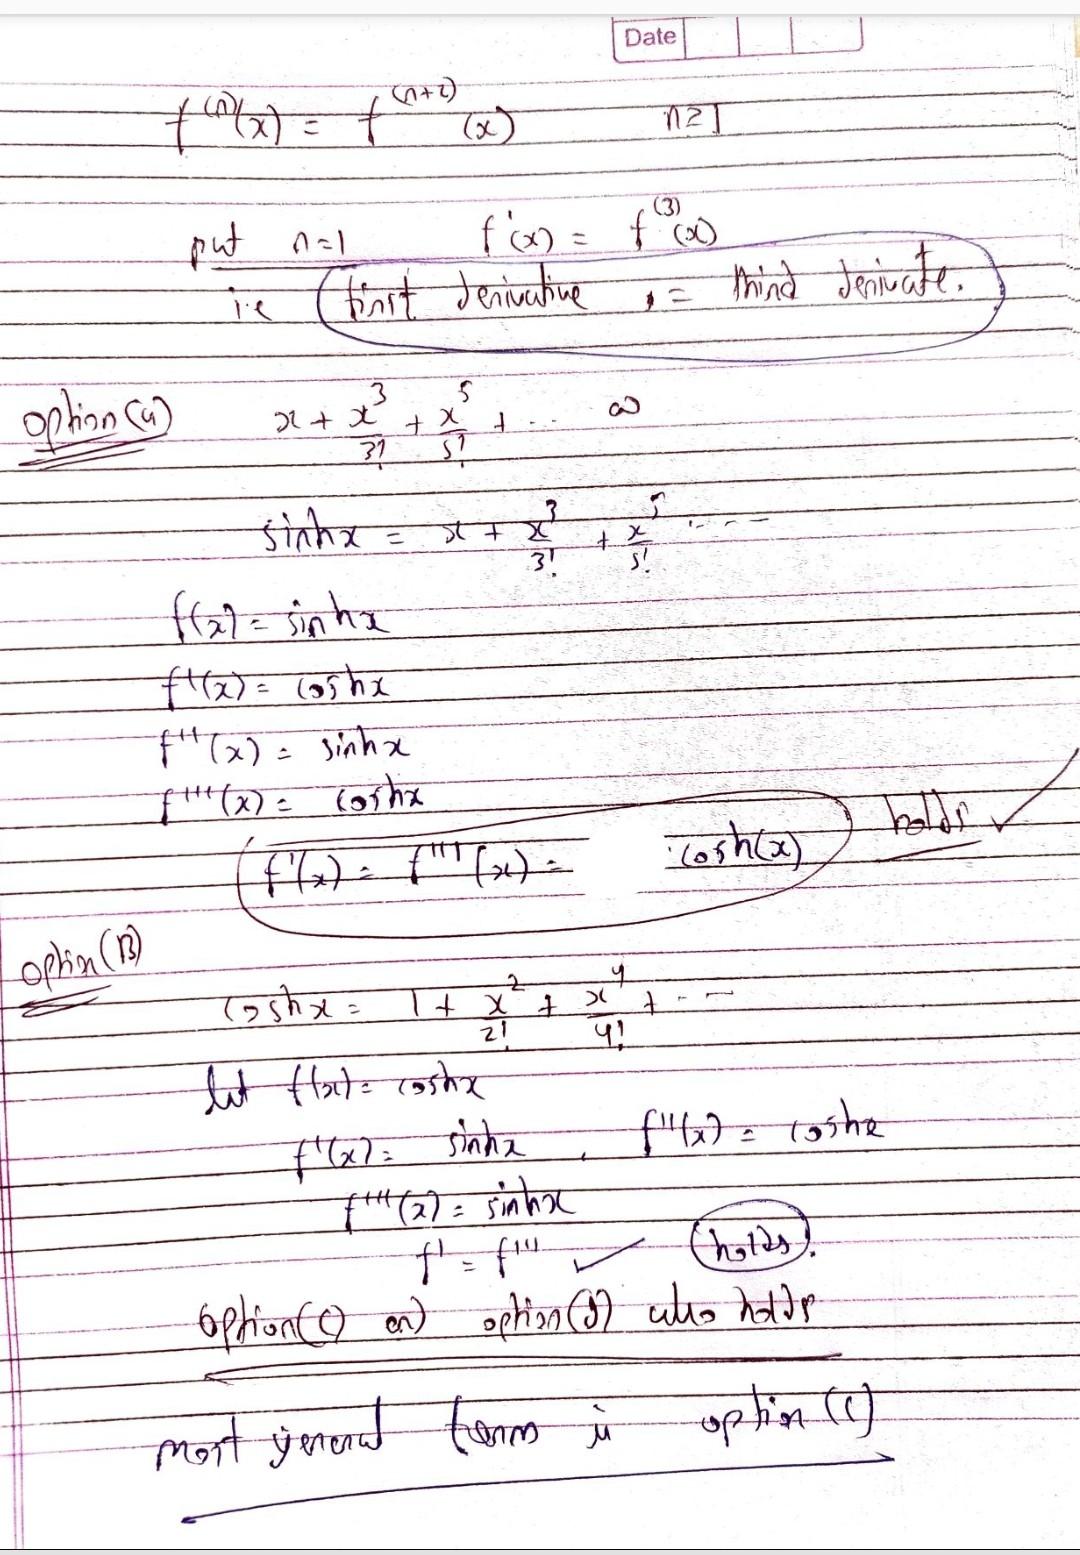 Date
f^(n)(x) = f^(n+2)(x) n≥1
put n=1 f'(x) = f^(3)(x)
i.e first derivative , = third derivate.
option(a) x + x^3/3! + x^5/5! + ... ∞
sinhx = x + x^3/3! + x^5/5! ....
f(x) = sinhx
f'(x) = coshx
f''(x) = sinhx
f'''(x) = coshx
f'(x) = f'''(x) = cosh(x) holds ✓
option(B)
coshx = 1 + x^2/2! + x^4/4! + ...
let f(x) = coshx
f'(x) = sinhx , f''(x) = coshx
f'''(x) = sinhx
f' = f''' ✓ holds.
option(C) option(D) also holds
most general term is option (C)